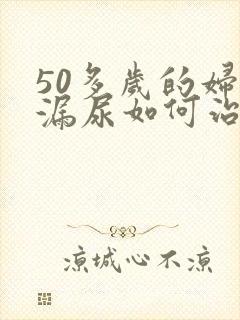 50多岁的婦
漏尿如何治
凉城心不凉